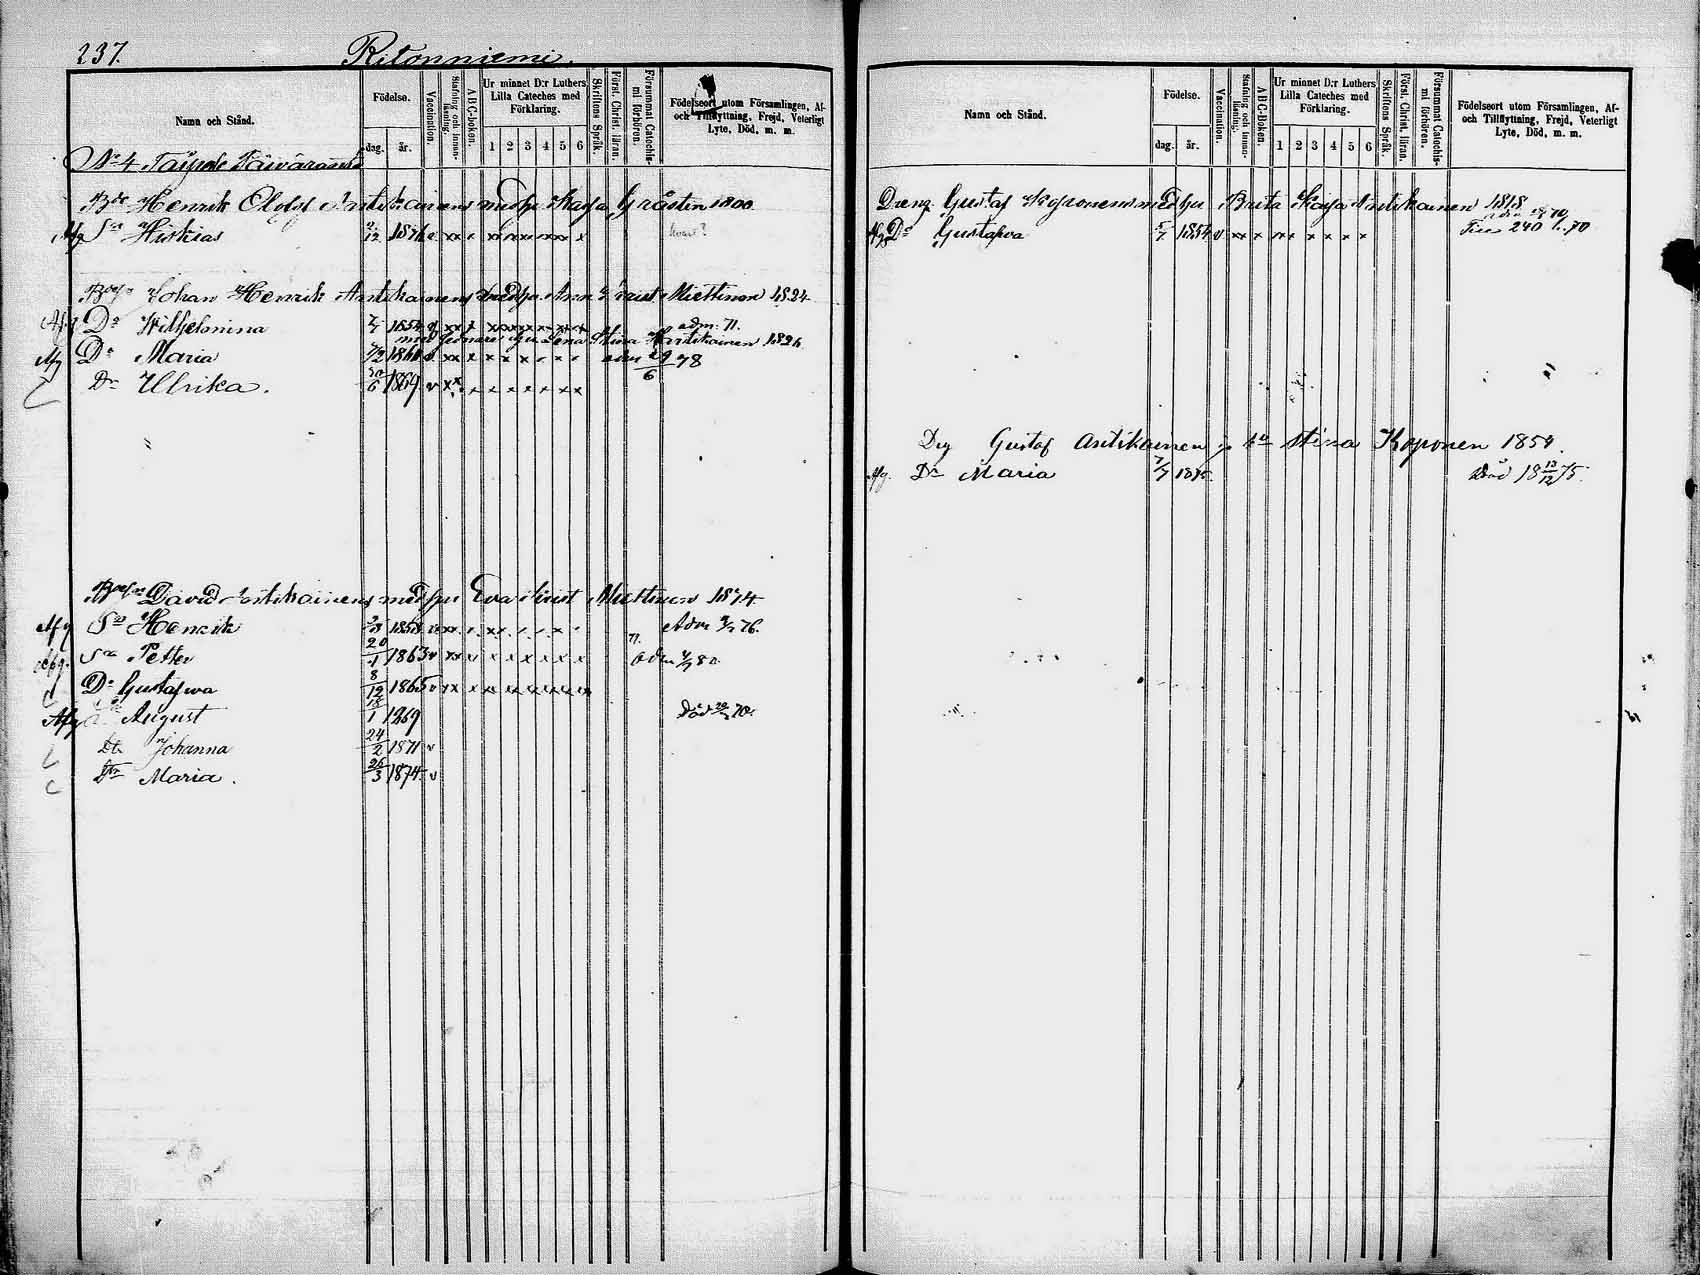 237. Ritonniemi.
Namn och Stånd.
Födelse.
dag. år.
Vaccination.
Stafning och innan-läsning.
ABC-boken.
Ur minnet D:r Luthers Lilla Cateches med Förklaring.
1 2 3 4 5 6
Skriftens Språk.
Först. Christ. läran.
Försummat Catechis-mi förhören.
Födelseort utom Församlingen, Af- och Tillflyttning, Frejd, Veterligt Lyte, Död, m. m.
No 4
Henrik Olofss. Antikainens medhu Kaisa Gråsten 1800
Afg Sn Hiskias 12 v
Johan Henrik Antikainens Miettinen 1824
Afg Dr Wilhelmina 1854 adm. 71.
Lena Stina Antikainen 1826
Afg Dr Maria adm 29/6 78
Dr Ulrika. 30/6 1869 v
David Antikainens medhu Eva Krist Miettinen
Afg Sn Henrik 1858 Adm 76.
Afg. Sn Petter 20/1 1863 v adm 80.
Dr Gustafwa 8/12 1865 v
Afg August 18/1 1869 Död 70.
Dtr Johanna 24/2 1871 v
Dtr Maria. 26/3 1874 v
Namn och Stånd.
Födelse.
dag. år.
Vaccination.
Stafning och innan-läsning.
ABC-boken.
Ur minnet D:r Luthers Lilla Cateches med Förklaring.
1 2 3 4 5 6
Skriftens Språk.
Först. Christ. läran.
Försummat Catechis-mi förhören.
Födelseort utom Församlingen, Af- och Tillflyttning, Frejd, Veterligt Lyte, Död, m. m.
Dreng Gustaf Koponens medhu Brita Kaisa Antikainen 1818
Afg Dr Gustafva 1854 v 240 70
Drg Gustaf Antikainen Stina Koponen 1854.
Afg. Dr Maria 7/7 1875. Död 18 13/12 75.